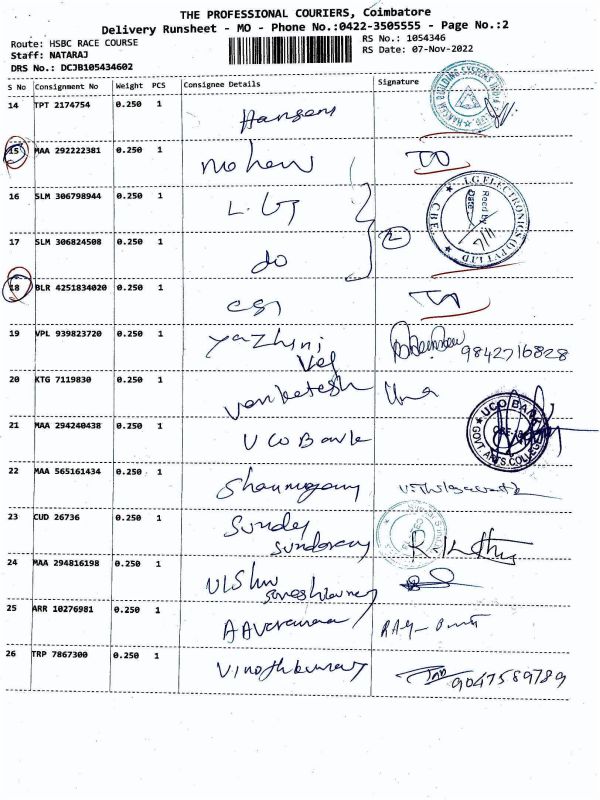 THE PROFESSIONAL COURIERS, Coimbatore
Delivery Runsheet - MO - Phone No.:0422-3505555 - Page No.:2
Route: HSBC RACE COURSE
RS No.: 1054346
Staff: NATARAJ
RS Date: 07-Nov-2022
DRS No.: DCJB105434602
S No Consignment No Weight PCS Consignee Details Signature
14 TPT 2174754 0.250 1
15 MAA 292222381 0.250 1 Mohan
16 SLM 306798944 0.250 1 L.G
L.G ELECTRONICS (I) PVT LTD
C.B.E.
Recd By
Date
7/11
17 SLM 306824508 0.250 1 do 2
18 BLR 4251834020 0.250 1
19 VPL 939823720 0.250 1 Yazhini Vel 9842716828
20 KTG 7119830 0.250 1 Venkatesh Uma
21 MAA 294240438 0.250 1 UCO Bank
UCO BANK
GOVT ARTS COLLEGE
22 MAA 565161434 0.250 1
23 CUD 26736 0.250 1 Sunder
24 MAA 294816198 0.250 1
25 ARR 10276981 0.250 1
26 TRP 7867300 0.250 1 Vinothkumar 9047589789